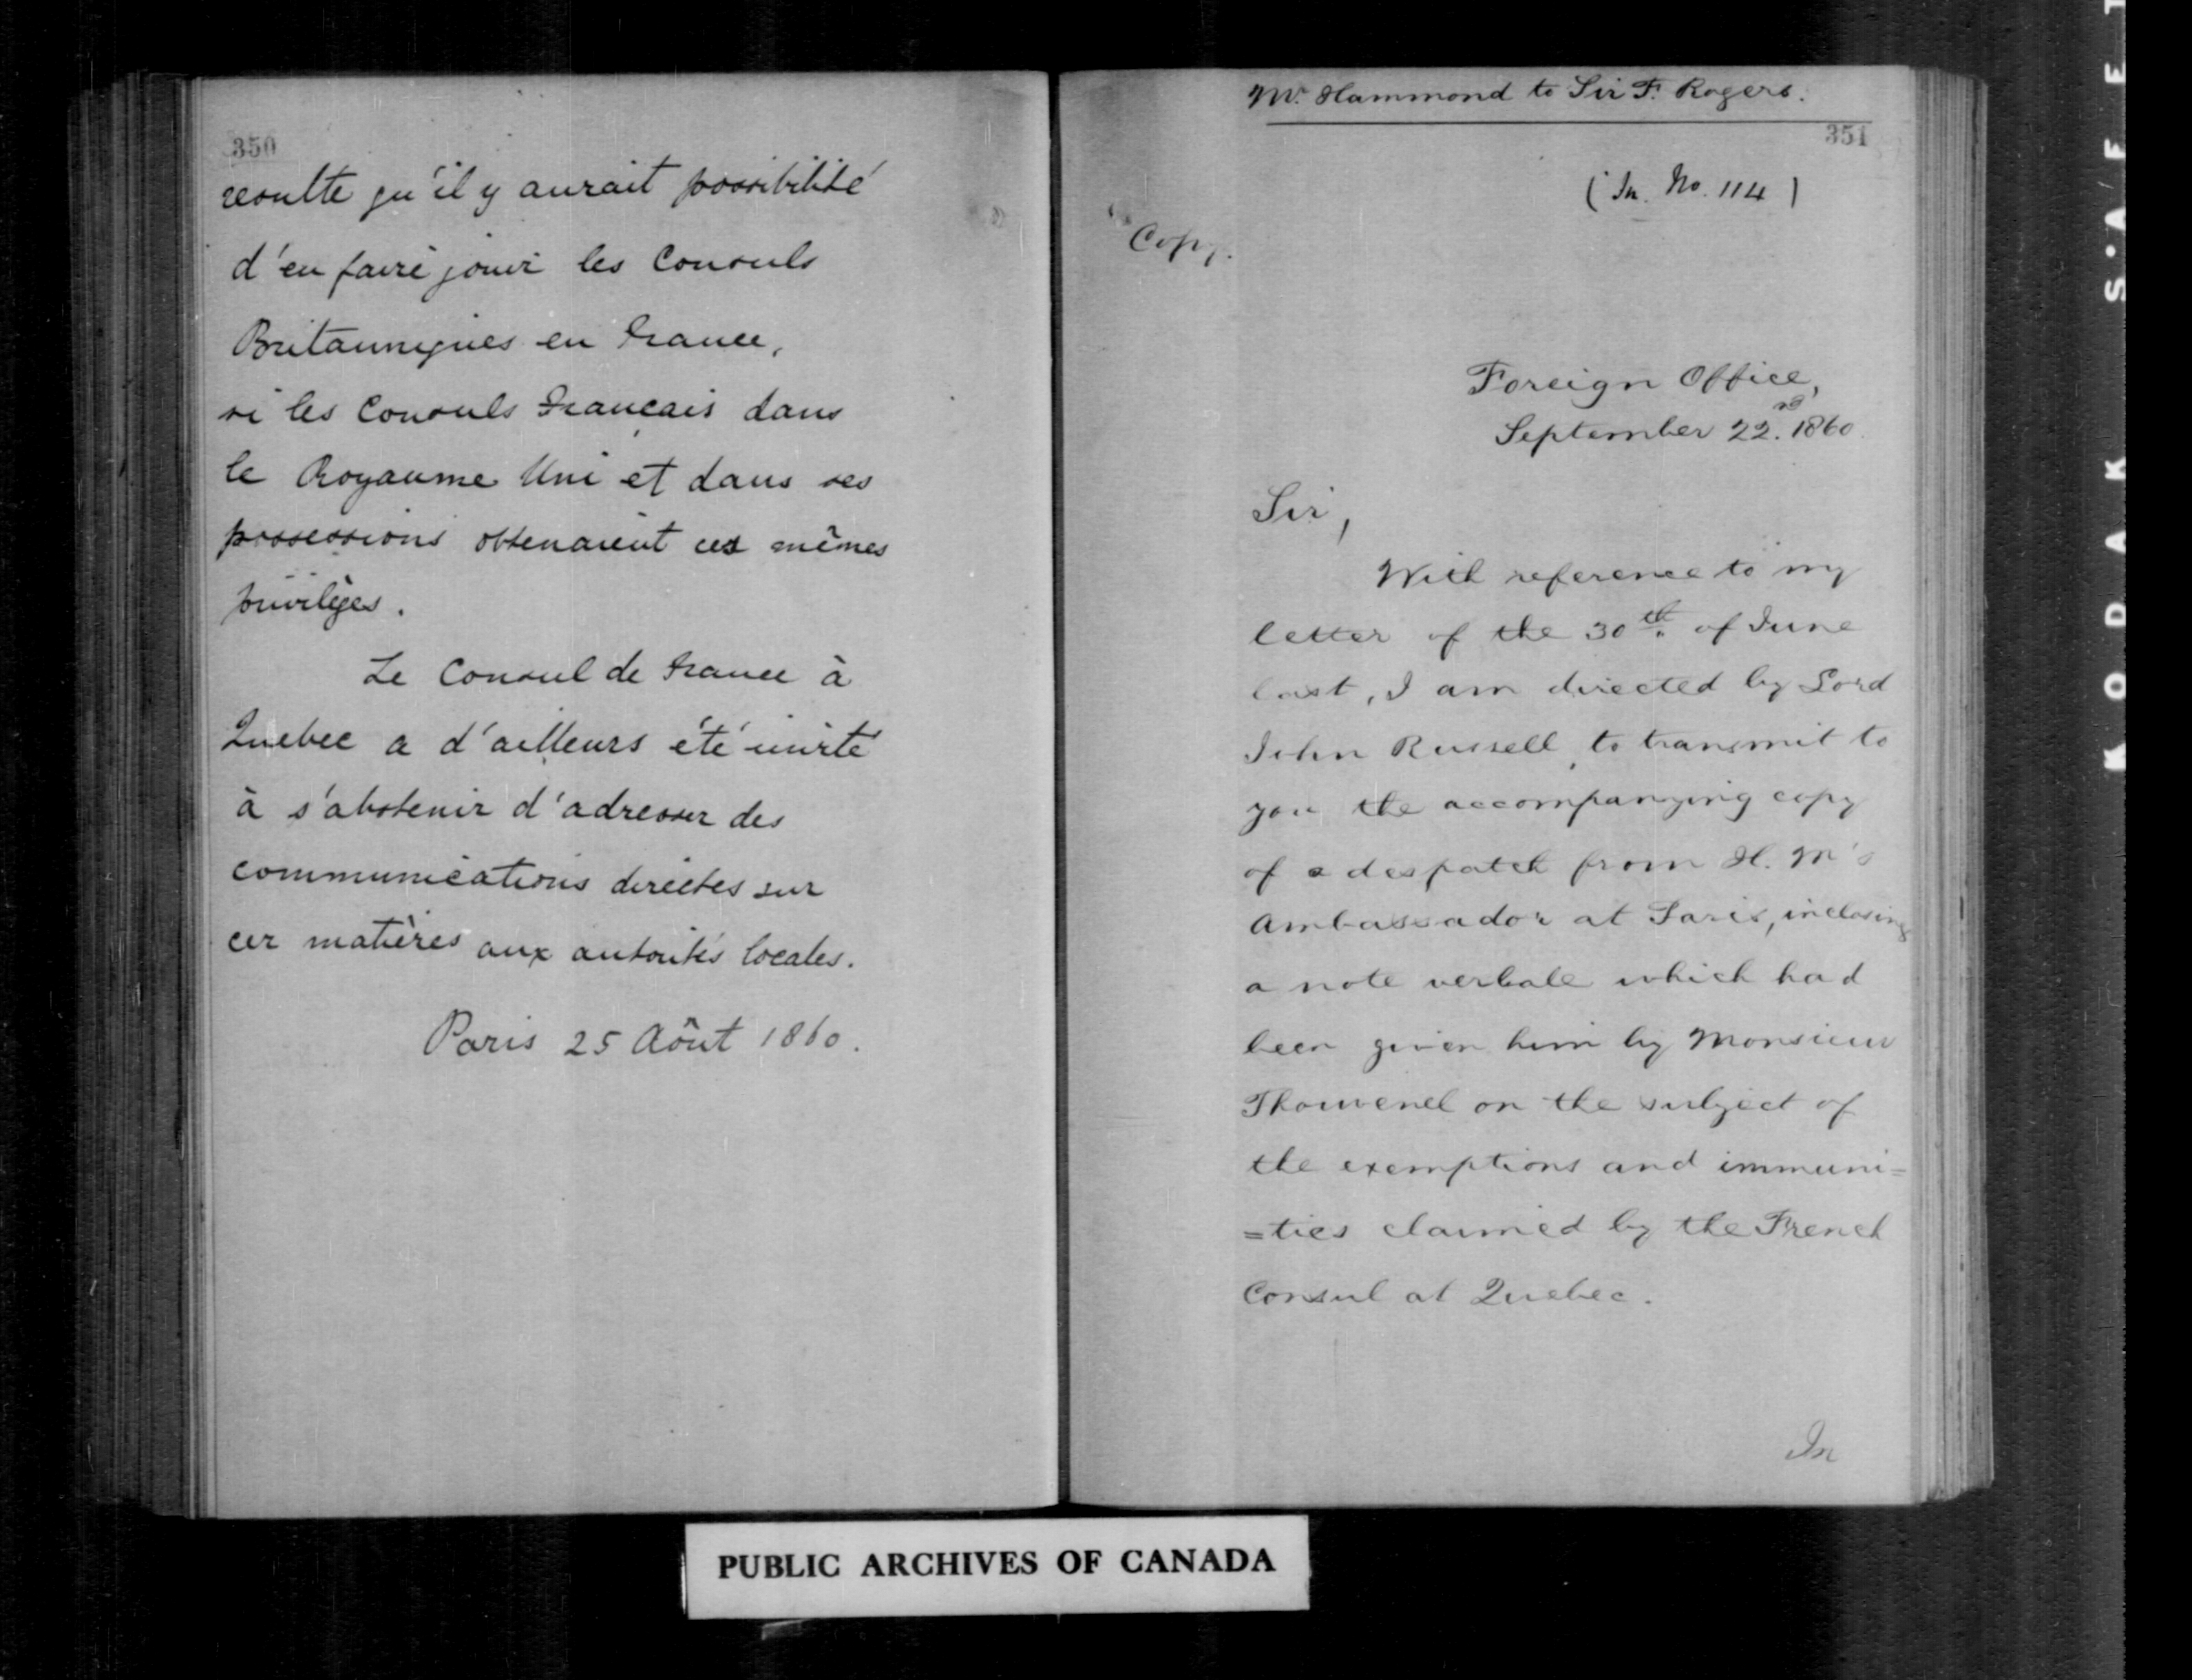 350
resulte qu'il y aurait possibilité
d'en faire jouir les Consuls
Britanniques en France,
si les Consuls Français dans
le Royaume Uni et dans ses
possessions obtenaient ces mêmes
privilèges.
Le Consul de France à
Quebec a d'ailleurs été invité
à s'abstenir d'adresser des
communications directes sur
ces matières aux autorités locales.
Paris 25 Aôut 1860.
Mr. Hammond to Sir F. Rogers.
351
(In. No. 114)
Copy.
Foreign Office,
September 22nd. 1860.
Sir,
With reference to my
letter of the 30th. of June
last, I am directed by Lord
John Russell, to transmit to
you the accompanying copy
of a despatch from H. M's
Ambassador at Paris, inclosing
a note verbale which had
been given him by Monsieur
Thouvenel on the subject of
the exemptions and immuni=
=ties claimed by the French
Consul at Quebec.
In
PUBLIC ARCHIVES OF CANADA
KODAK S'AFE T